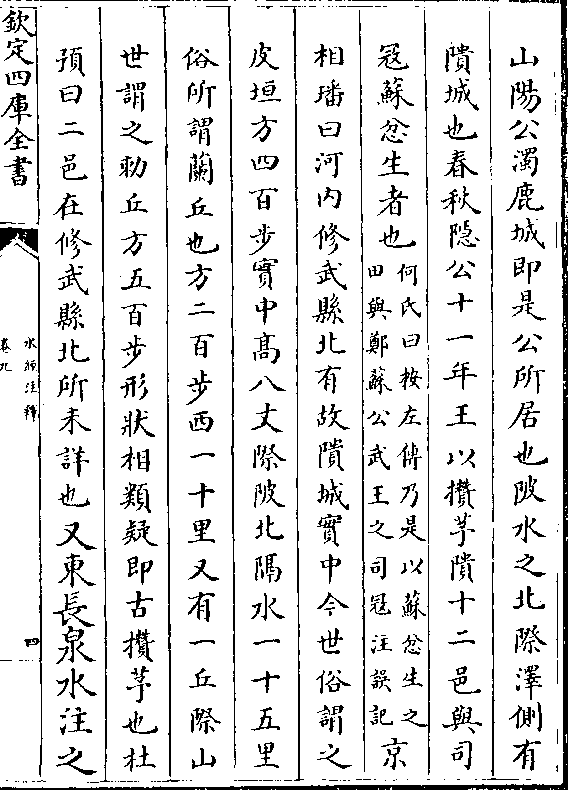 山陽公濁鹿城即是公所居也陂水之北際澤側有
隤城也春秋隐公十一年王以攢茅隤十二邑與司
冦蘇忿生者也何氏曰按左傳乃是以蘇忿生之
田與鄭蘇公武王之司冦注誤記京
相璠曰河内修武縣北有故隤城實中今世俗謂之
皮垣方四百步實中髙八丈際陂北隔水一十五里
俗所謂蘭丘也方二百步西一十里又有一丘際山
世謂之勑丘方五百步形狀相類疑即古攢茅也杜
預曰二邑在修武縣北所未詳也又東長泉水注之
欽定四庫全書
水經注釋
卷九
四